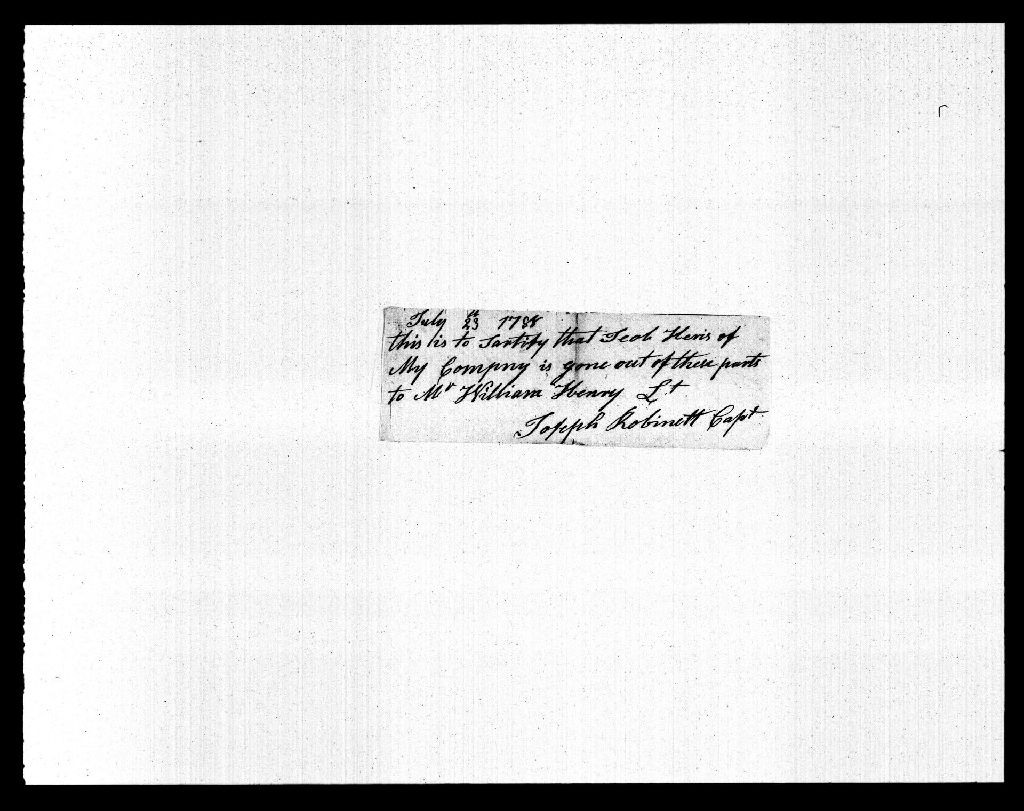 July 23 1788
this is to Sartify that Jeob Heris of
My Compny is gone out of these parts
to Mr William Henry Lt
Joseph Robinett Capt